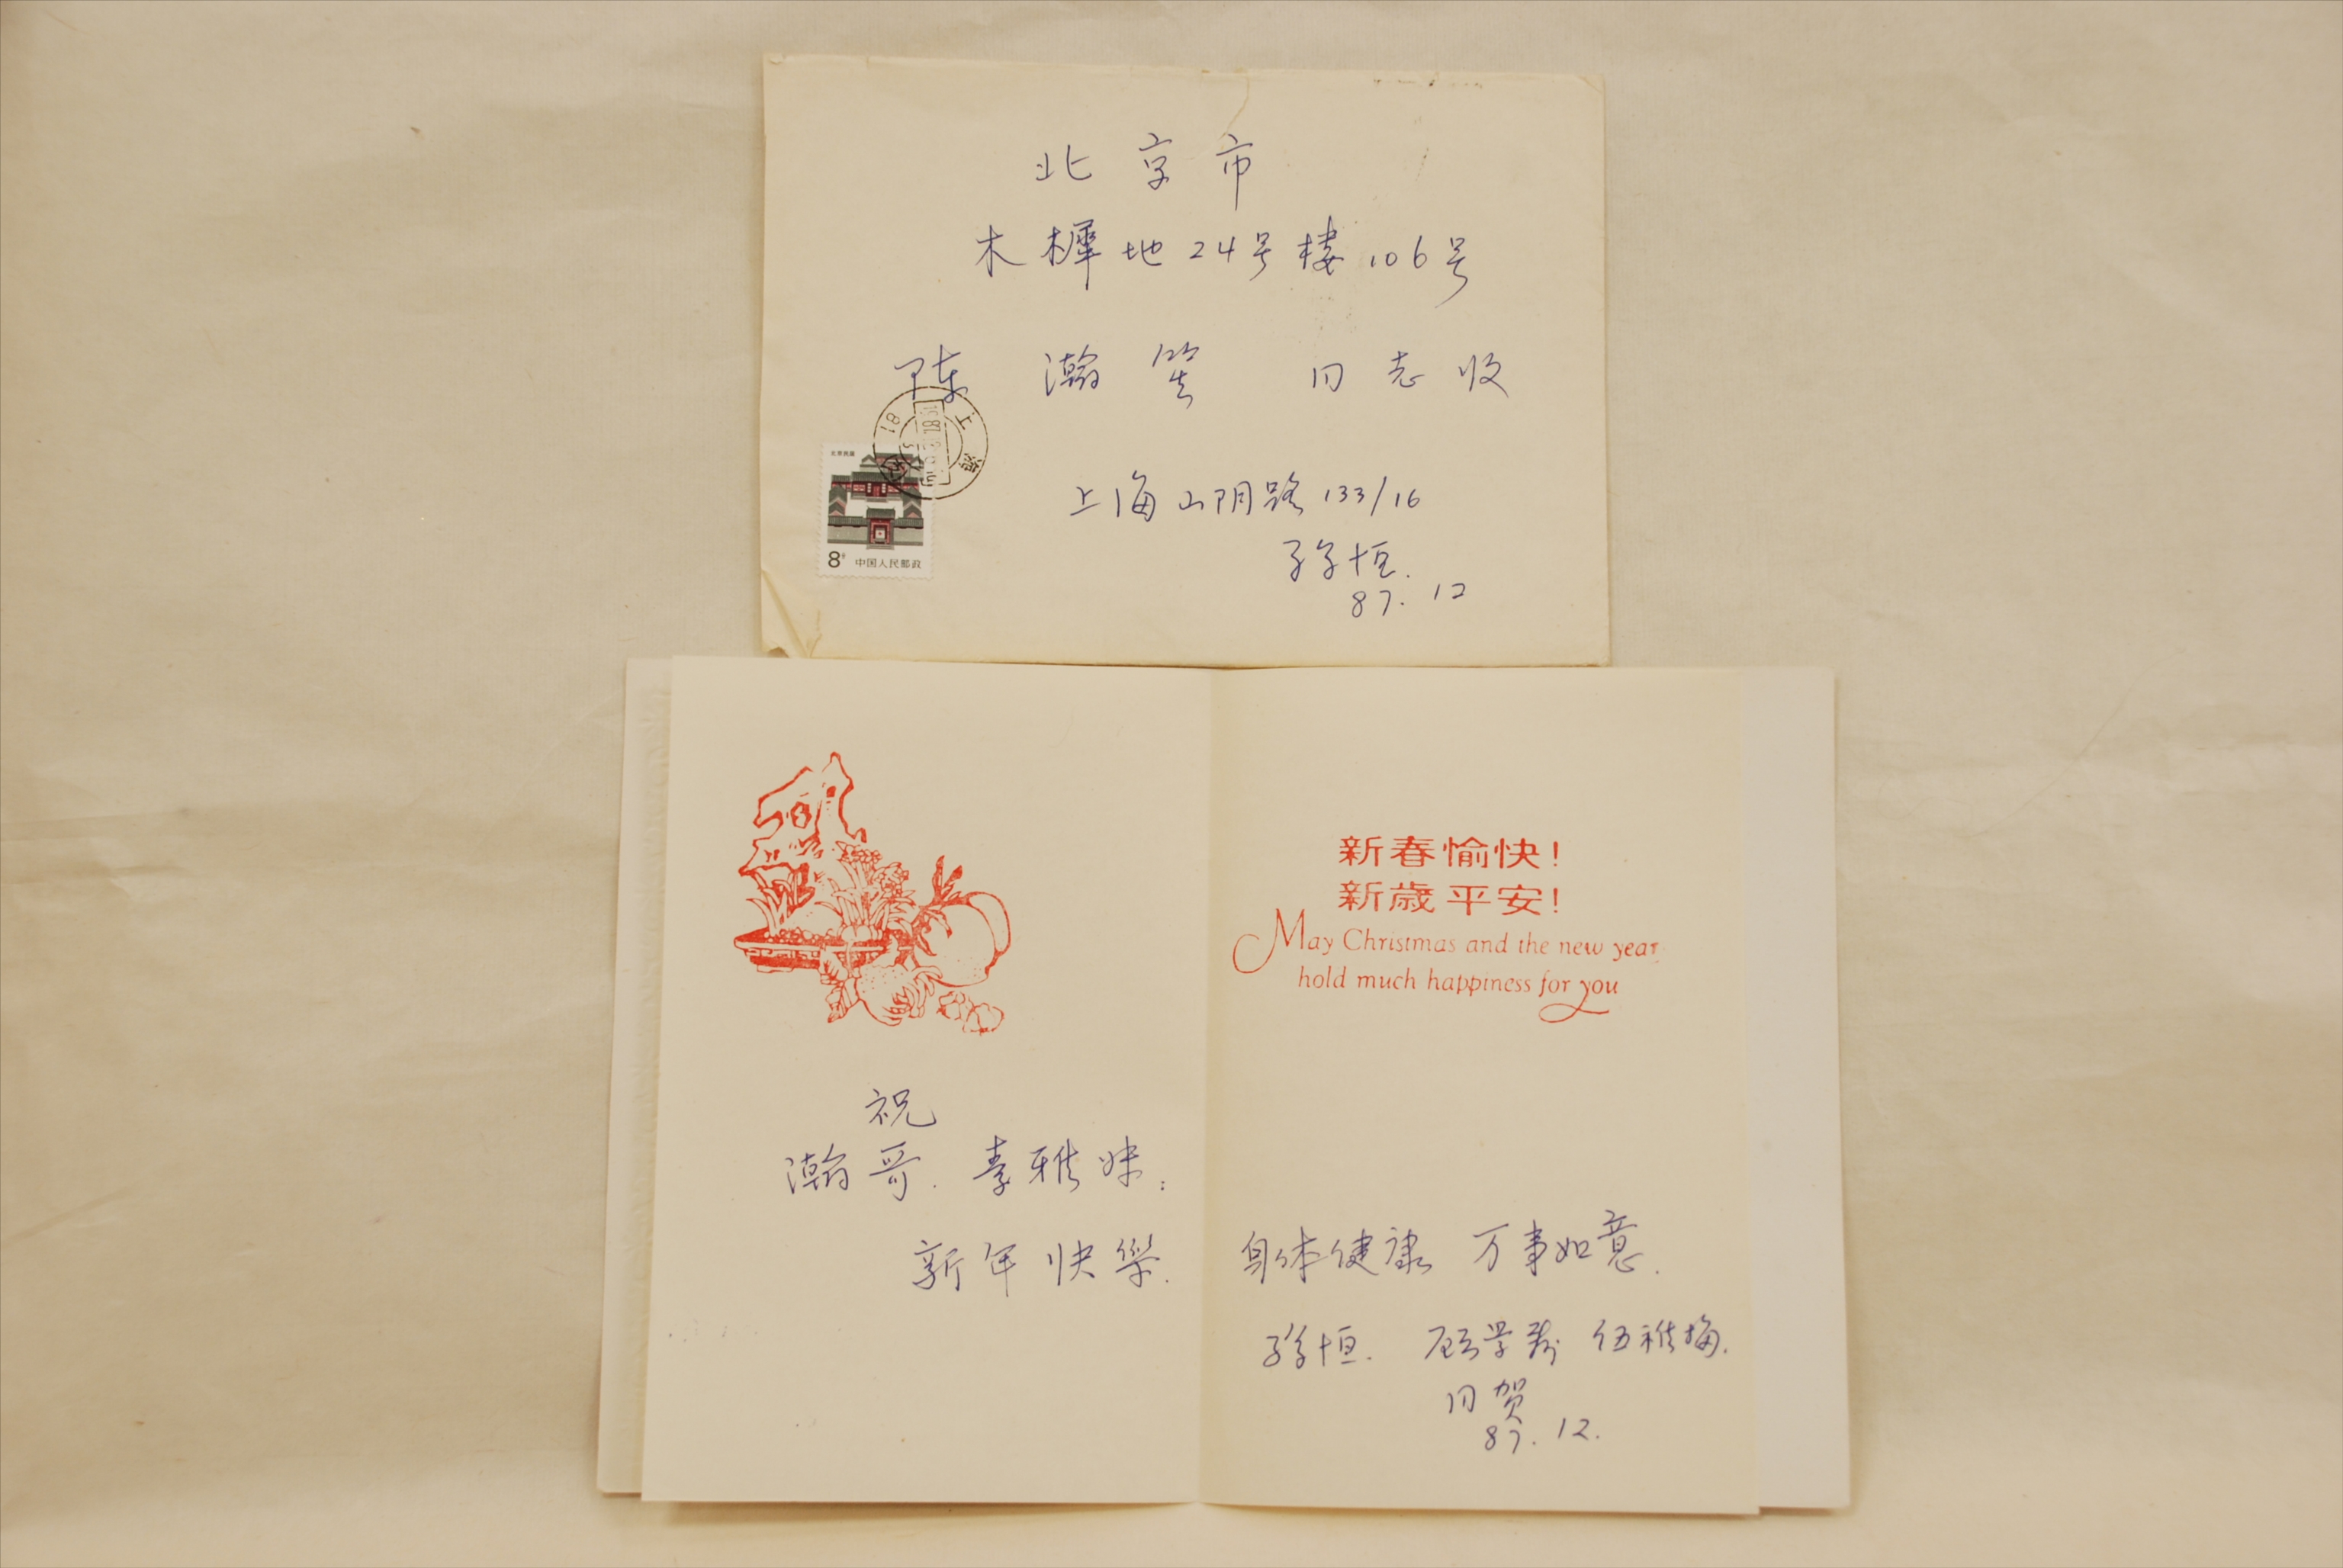 北京市
木樨地24号楼106号
陈瀚笙 同志收
上海
北京民居
8分 中国人民邮政
上海山阴路133/16
孙恒.
87.12
新春愉快!
新歲平安!
May Christmas and the new year
hold much happiness for you
祝
瀚哥. 素雅妹:
新年快樂.
身体健康 万事如意.
孙恒. 顾学 伍雅梅.
同贺
87.12.